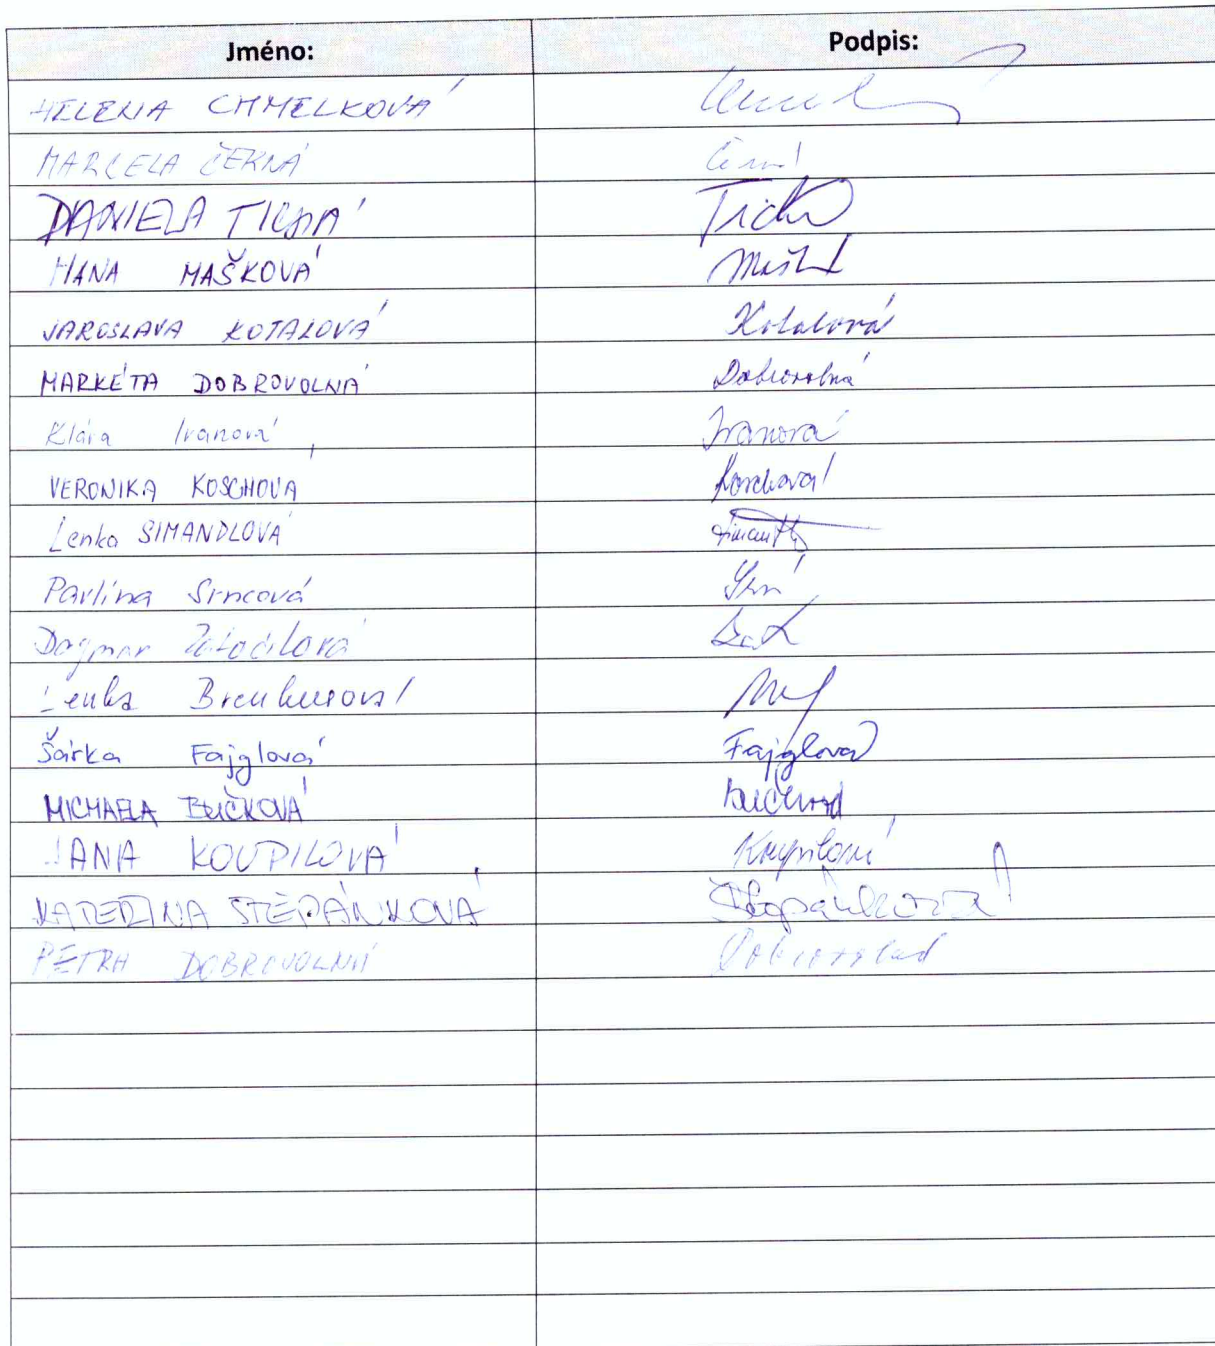 Jméno: Podpis:
HELENA CHMELKOVÁ
MARCELA ČERNÁ
DANIELA TICHÁ Tichá
HANA MAŠKOVÁ
JAROSLAVA KOTALOVÁ Kotalová
MARKÉTA DOBROVOLNÁ Dobrovolná
Klára Ivanová Ivanová
VERONIKA KOSCHOVÁ Koschová
Lenka SIMANDLOVÁ
Pavlína Srncová
Dagmar Zatočilová
Lenka
Šárka Fajglová Fajglová
MICHAELA BUČKOVÁ
JANA KOUPILOVÁ Koupilová
KATEŘINA ŠTĚPÁNKOVÁ Štěpánková
PETRA DOBROVOLNÁ